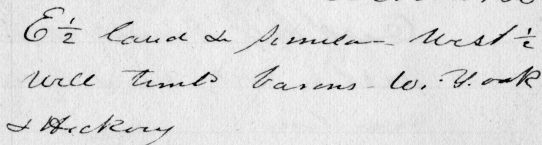 E ½ land & similar West ½
Well timb barens W. Y. oak
& Hickory